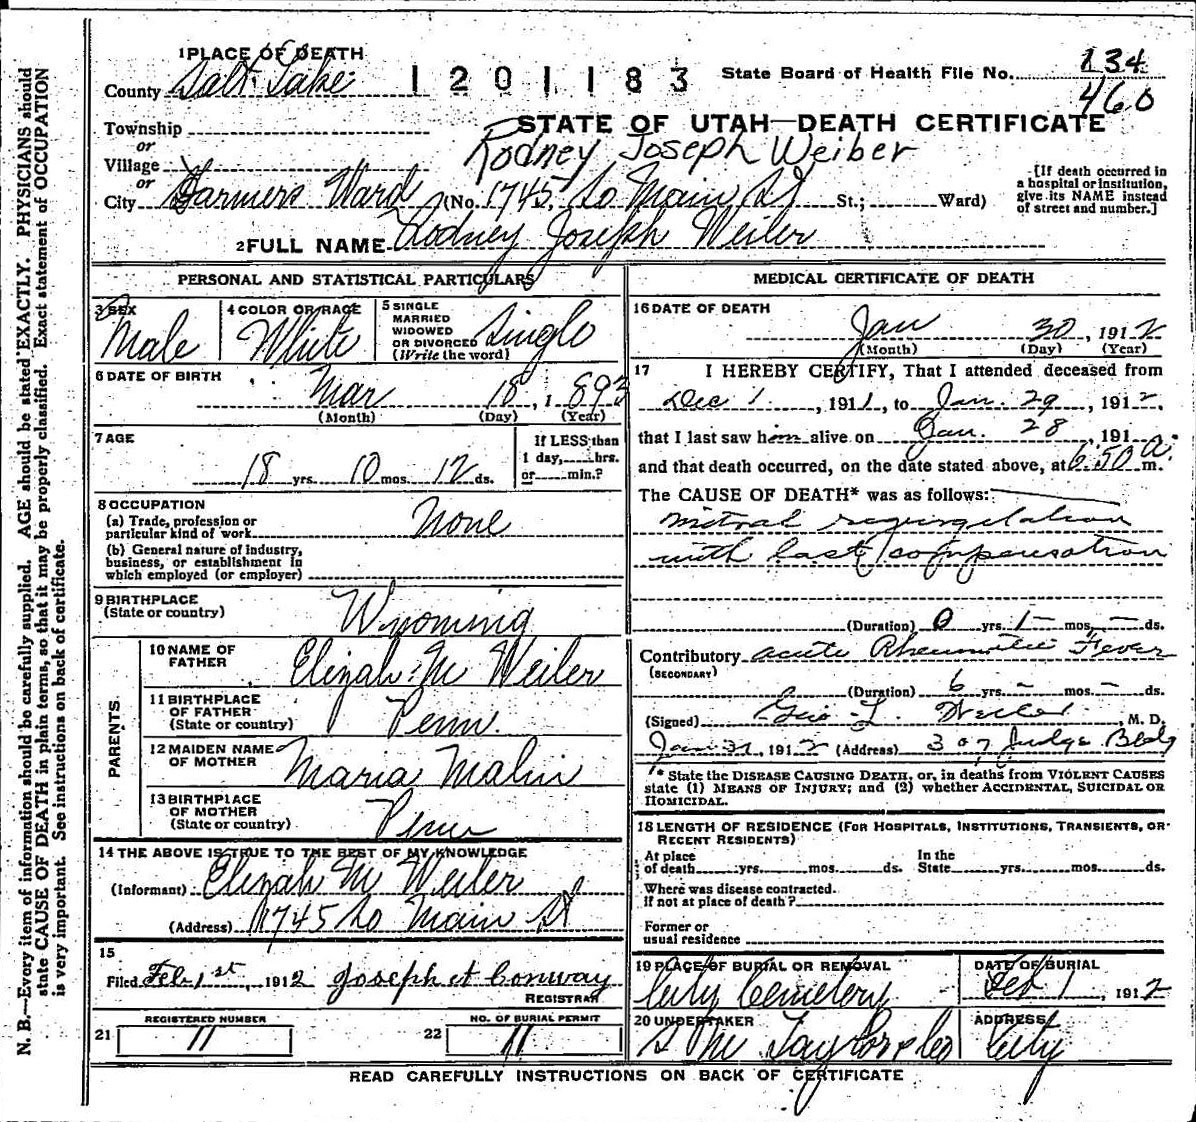 1 PLACE OF DEATH
County Salt Lake
1201183
State Board of Health File No. 134
460
Township
or
Village
or
City Farmers Ward (No. 1745 So Main St St.; Ward)
STATE OF UTAH—DEATH CERTIFICATE
Rodney Joseph Weiber
[If death occurred in a hospital or institution, give its NAME instead of street and number.]
2 FULL NAME Rodney Joseph Weiler
PERSONAL AND STATISTICAL PARTICULARS
3 SEX
Male
4 COLOR OR RACE
White
5 SINGLE
MARRIED
WIDOWED
OR DIVORCED
(Write the word)
Single
6 DATE OF BIRTH
Mar 18, 1893
(Month) (Day) (Year)
7 AGE
18 yrs. 10 mos. 12 ds.
If LESS than
1 day, hrs.
or min.?
8 OCCUPATION
(a) Trade, profession or
particular kind of work None
(b) General nature of industry,
business, or establishment in
which employed (or employer)
9 BIRTHPLACE
(State or country) Wyoming
PARENTS
10 NAME OF
FATHER Elizah M Weiler
11 BIRTHPLACE
OF FATHER
(State or country) Penn.
12 MAIDEN NAME
OF MOTHER Maria Malin
13 BIRTHPLACE
OF MOTHER
(State or country) Penn
14 THE ABOVE IS TRUE TO THE BEST OF MY KNOWLEDGE
(Informant) Elizah M Weiler
(Address) 1745 So Main St
15
Filed Feb 1st, 1912 Joseph H Conway
REGISTRAR
21 REGISTERED NUMBER
11
22 NO. OF BURIAL PERMIT
11
MEDICAL CERTIFICATE OF DEATH
16 DATE OF DEATH
Jan 30, 1912
(Month) (Day) (Year)
17 I HEREBY CERTIFY, That I attended deceased from
Dec 1, 1911, to Jan. 29, 1912,
that I last saw him alive on Jan. 28, 191
and that death occurred, on the date stated above, at 6:50 a m.
The CAUSE OF DEATH* was as follows:
mitral regurgitation
with lost compensation
(Duration) 0 yrs. 1 mos. – ds.
Contributory acute Rheumatic Fever
(SECONDARY)
(Duration) 6 yrs. – mos. – ds.
(Signed) Geo L. Weiler, M. D.
Jan 31, 1912 (Address) 307 Judge Bldg
* State the DISEASE CAUSING DEATH, or, in deaths from VIOLENT CAUSES
state (1) MEANS OF INJURY; and (2) whether ACCIDENTAL, SUICIDAL OR
HOMICIDAL.
18 LENGTH OF RESIDENCE (FOR HOSPITALS, INSTITUTIONS, TRANSIENTS, OR
RECENT RESIDENTS)
At place
of death yrs. mos. ds.
In the
State yrs. mos. ds.
Where was disease contracted.
If not at place of death?
Former or
usual residence
19 PLACE OF BURIAL OR REMOVAL
City Cemetery
DATE OF BURIAL
Feb 1, 1912
20 UNDERTAKER
S M Taylor & Co
ADDRESS
City
READ CAREFULLY INSTRUCTIONS ON BACK OF CERTIFICATE
N. B.—Every item of information should be carefully supplied. AGE should be stated EXACTLY. PHYSICIANS should
state CAUSE OF DEATH in plain terms, so that it may be properly classified. Exact statement of OCCUPATION
is very important. See instructions on back of certificate.